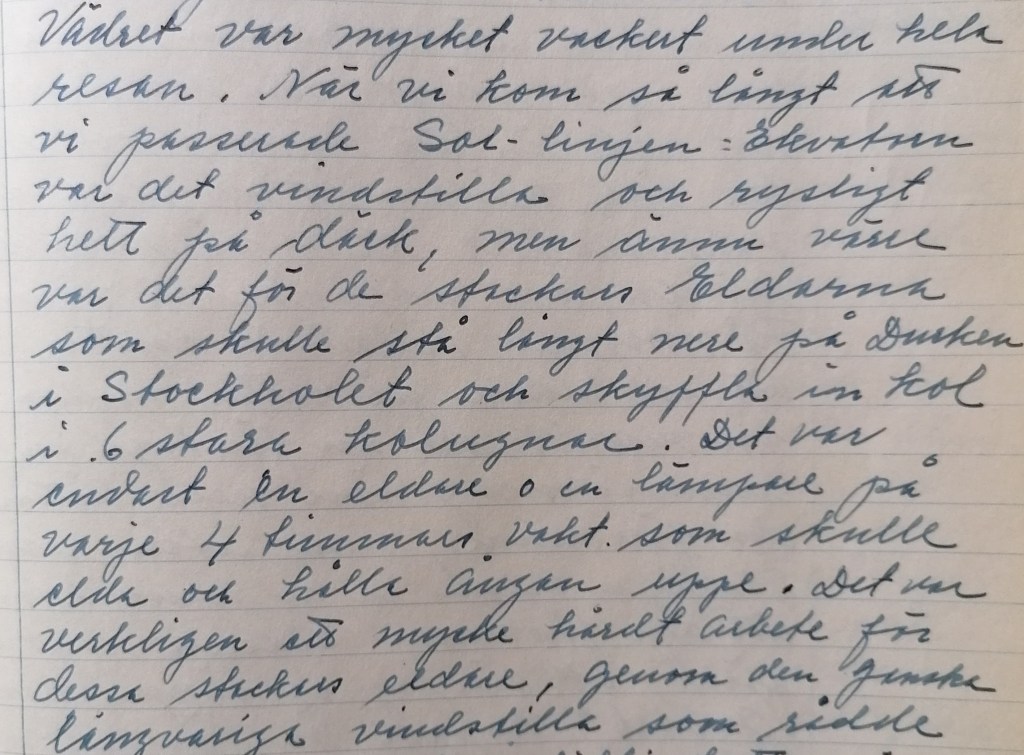 Vädret var mycket vackert under hela
resan. När vi kom så långt att
vi passerade Sol-linjen = Ekvatorn
var det vindstilla och rysligt
hett på däck, men ännu värre
var det för de stackars Eldarna
som skulle stå långt nere på Durken
i Stockholet och skyffla in kol
i 6 stora kolugnar. Det var
endast en eldare o en lämpare på
varje 4 timmars vakt. som skulle
elda och hålla ångan uppe. Det var
verkligen ett mycke hårdt arbete för
dessa stackars eldare, genom den ganska
långvariga vindstilla som rådde